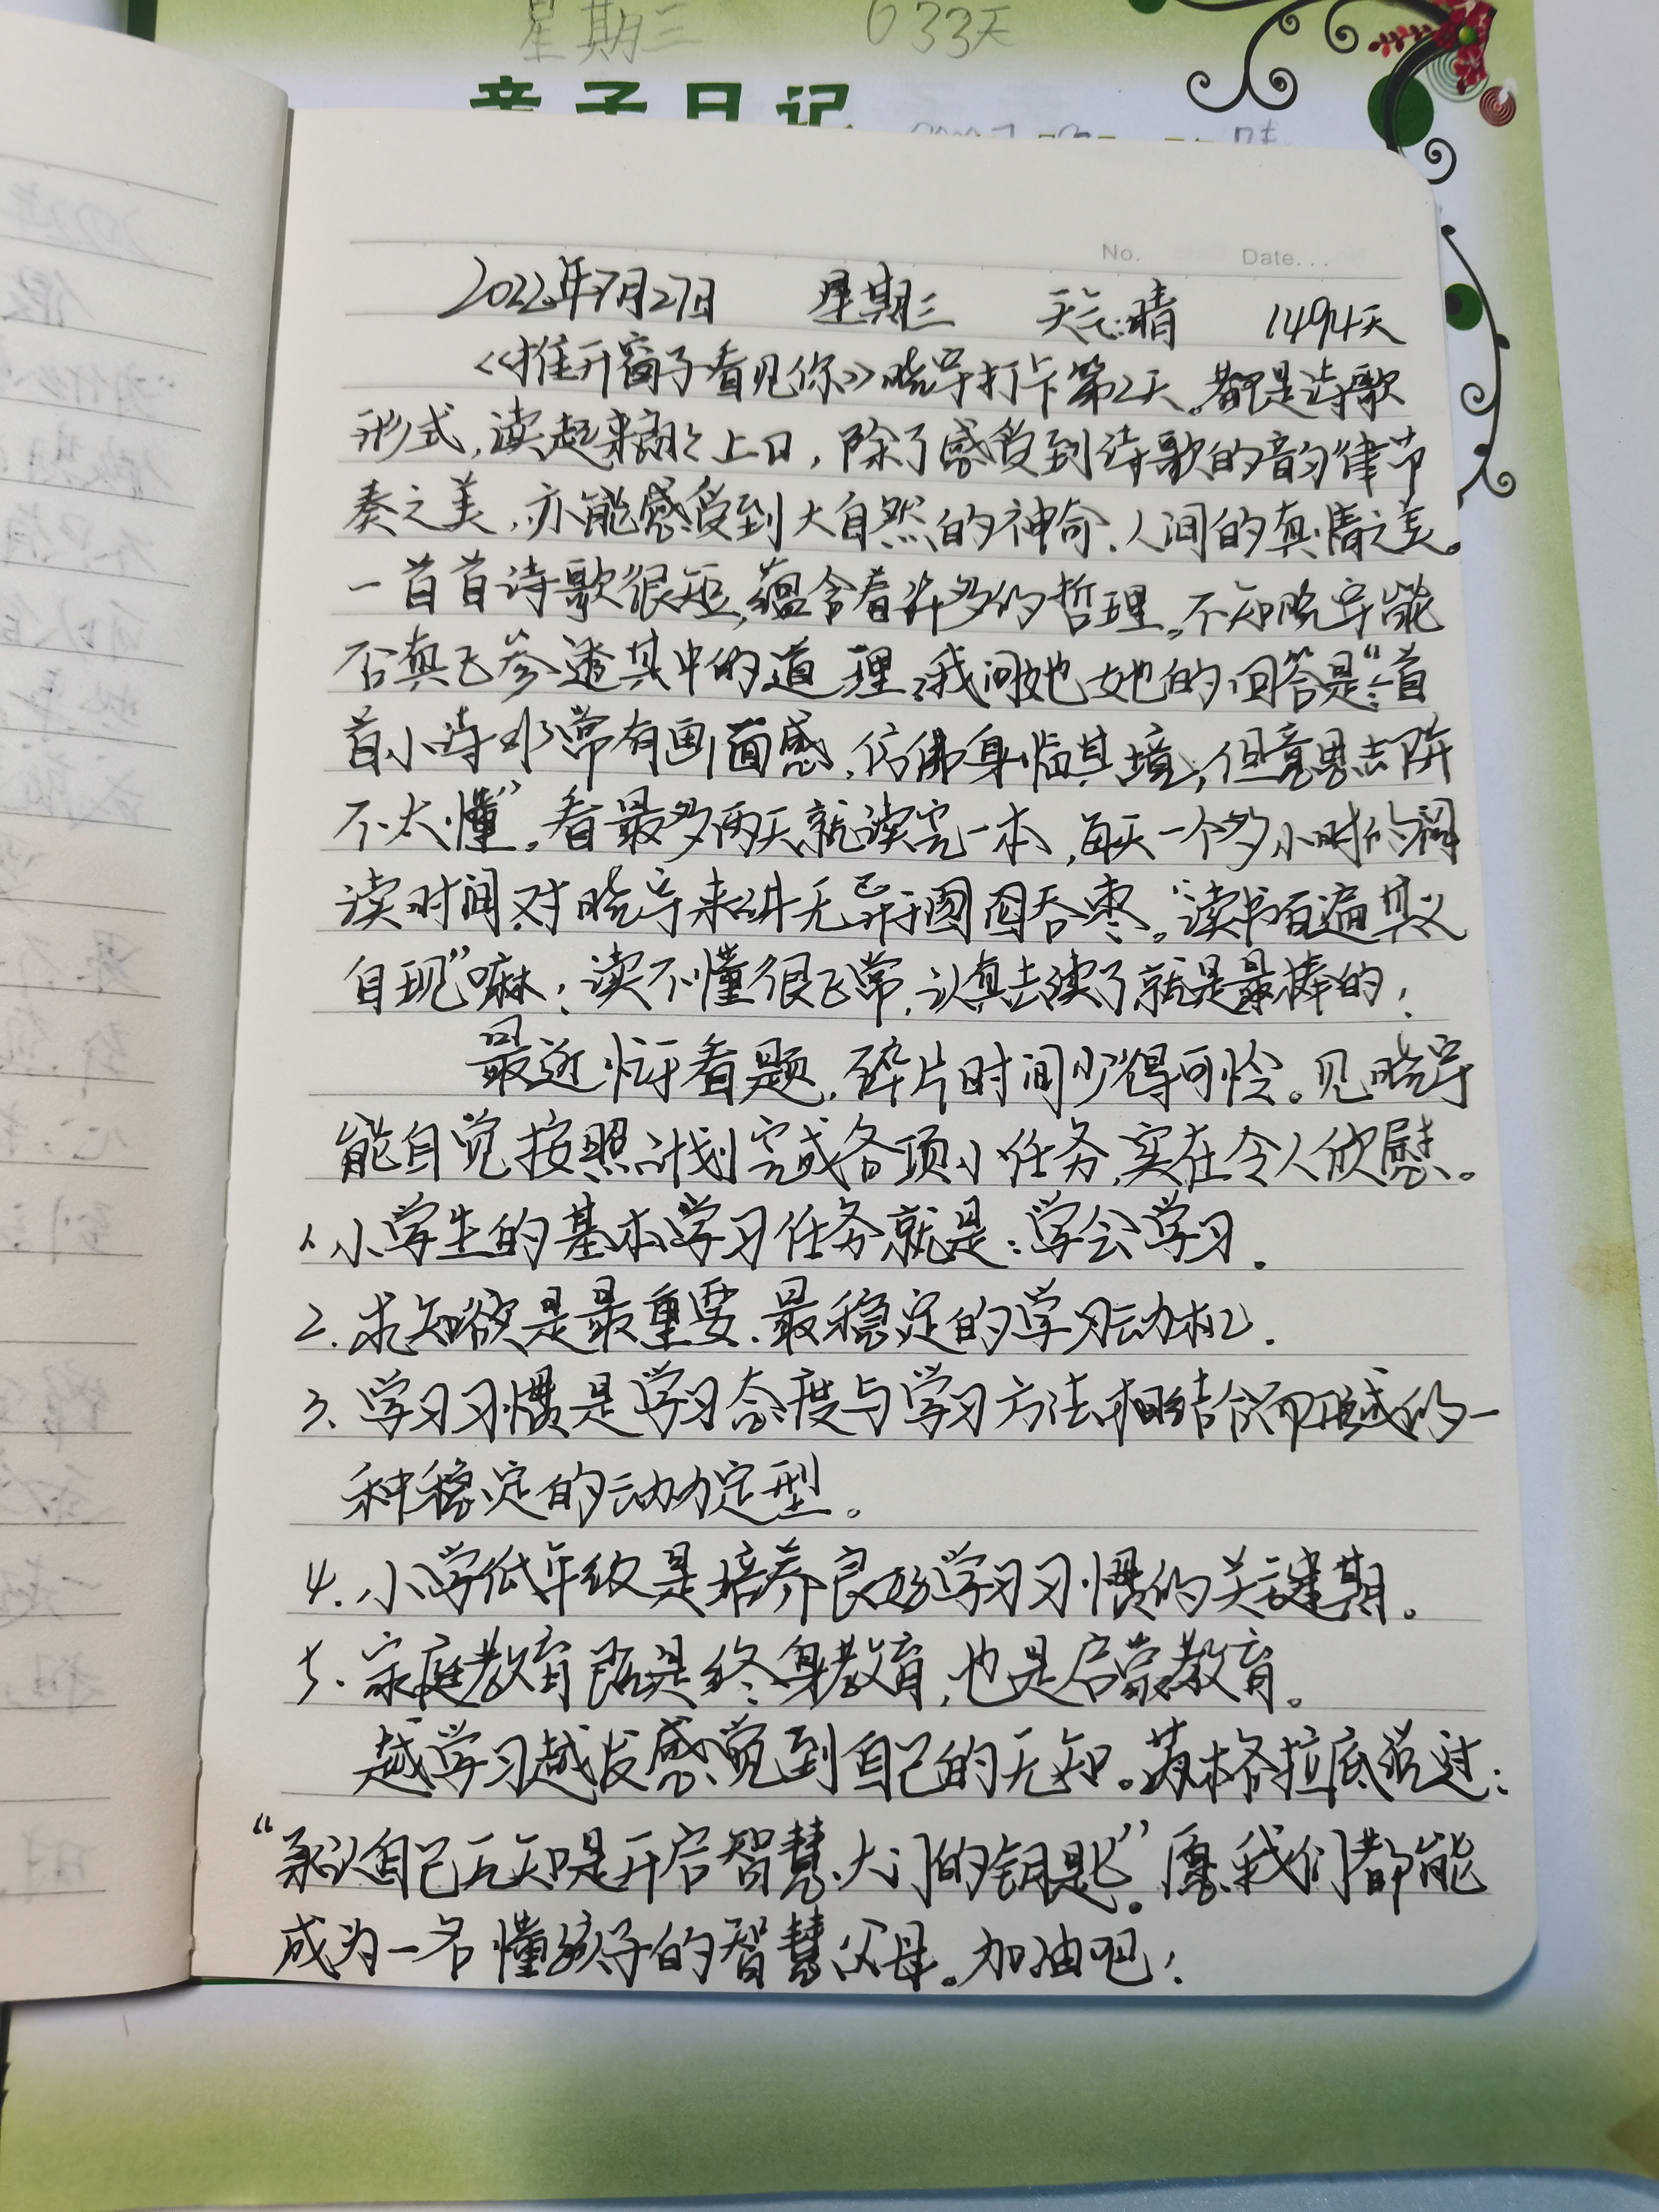 星期三 633天
亲子日记
No. Date...
2022年7月27日 星期三 天气:晴 1494天
《推开窗子看见你》晓宇打卡第2天。都是诗歌
形式,读起来朗朗上口,除了感受到诗歌的韵律节
奏之美,亦能感受到大自然的神奇、人间的真情之美。
一首首诗歌很短,蕴含着许多的哲理。不知晓宇能
否真正参透其中的道理,我问她她的回答是:“首
首小诗非常有画面感,仿佛身临其境,但意思去
不太懂”。看最多两天就读完一本,每天一个多小时的阅
读时间对晓宇来讲无异于囫囵吞枣。“读书百遍其义
自现”嘛!读不懂很正常,认真去读了就是最棒的!
最近忙于看题,碎片时间少得可怜。见晓宇
能自觉按照计划完成各项小任务,实在令人欣慰。
1.小学生的基本学习任务就是:学会学习.
2.求知欲是最重要、最稳定的学习动机.
3.学习习惯是学习态度与学习方法相结合而形成的一
种稳定的动力定型。
4.小学低年级是培养良好学习习惯的关键期。
5.家庭教育既是终身教育,也是启蒙教育。
越学习越发感觉到自己的无知。苏格拉底说过:
“承认自己无知是开启智慧大门的钥匙”。愿我们都能
成为一名懂孩子的智慧父母。加油吧!